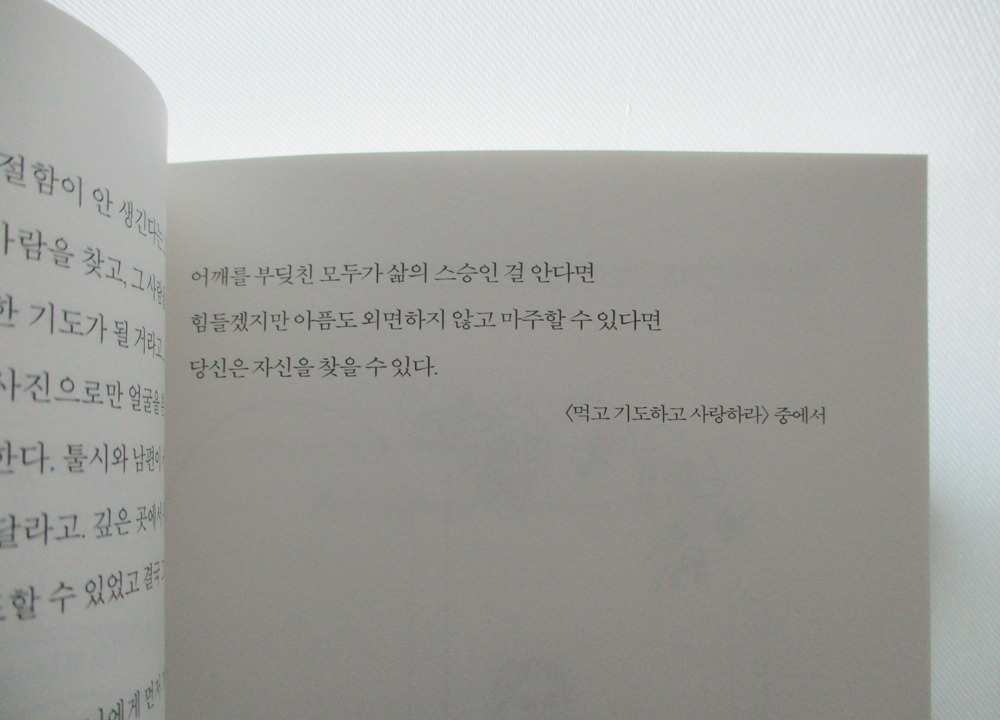 절함이 안 생긴다는
람을 찾고, 그 사람을
한 기도가 될 거라고
사진으로만 얼굴을
한다. 툴시와 남편이
달라고. 깊은 곳에서
할 수 있었고 결국
에게 먼저
어깨를 부딪친 모두가 삶의 스승인 걸 안다면
힘들겠지만 아픔도 외면하지 않고 마주할 수 있다면
당신은 자신을 찾을 수 있다.
〈먹고 기도하고 사랑하라〉 중에서